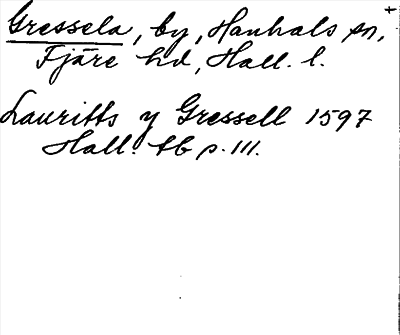 Gressela, by, Hanhals sn,
Fjäre hd, Hall. l.
Lauritts y Gressell 1597
Hall. tb p. 111.